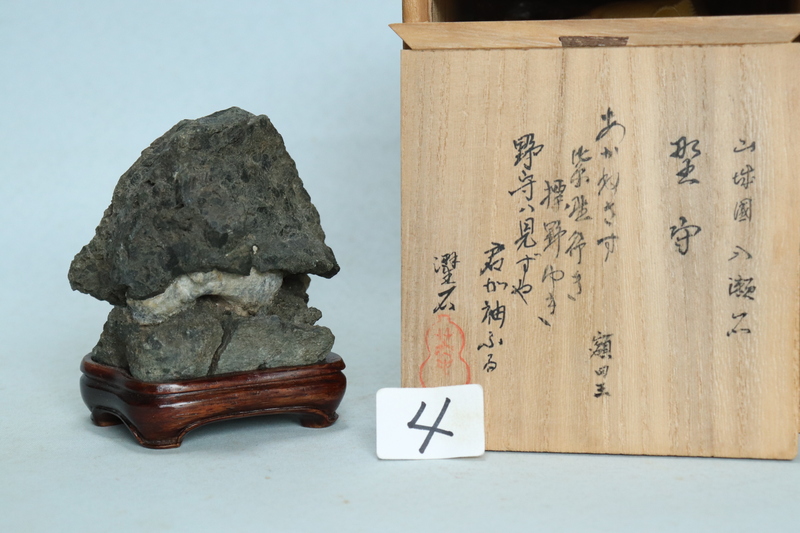 山城國 八瀬石
野守
あかねさす
紫野行き
標野ゆき
野守ハ見ずや
君が袖ふる
額田王
石
4